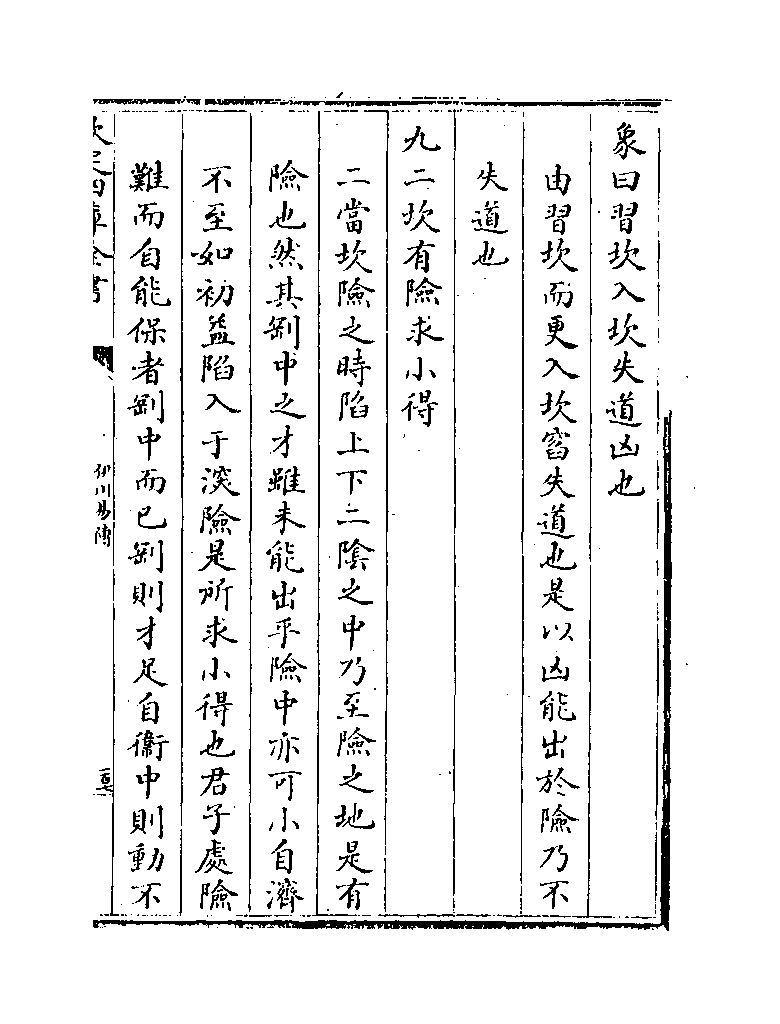 象曰習坎入坎失道凶也
由習坎而更入坎窞失道也是以凶能出於險乃不
失道也
九二坎有險求小得
二當坎險之時陷上下二隂之中乃至險之地是有
險也然其剛中之才雖未能出乎險中亦可小自濟
不至如初益陷入于深險是所求小得也君子處險
難而自能保者剛中而已剛則才足自衞中則動不
欽定四庫全書
伊川易傳